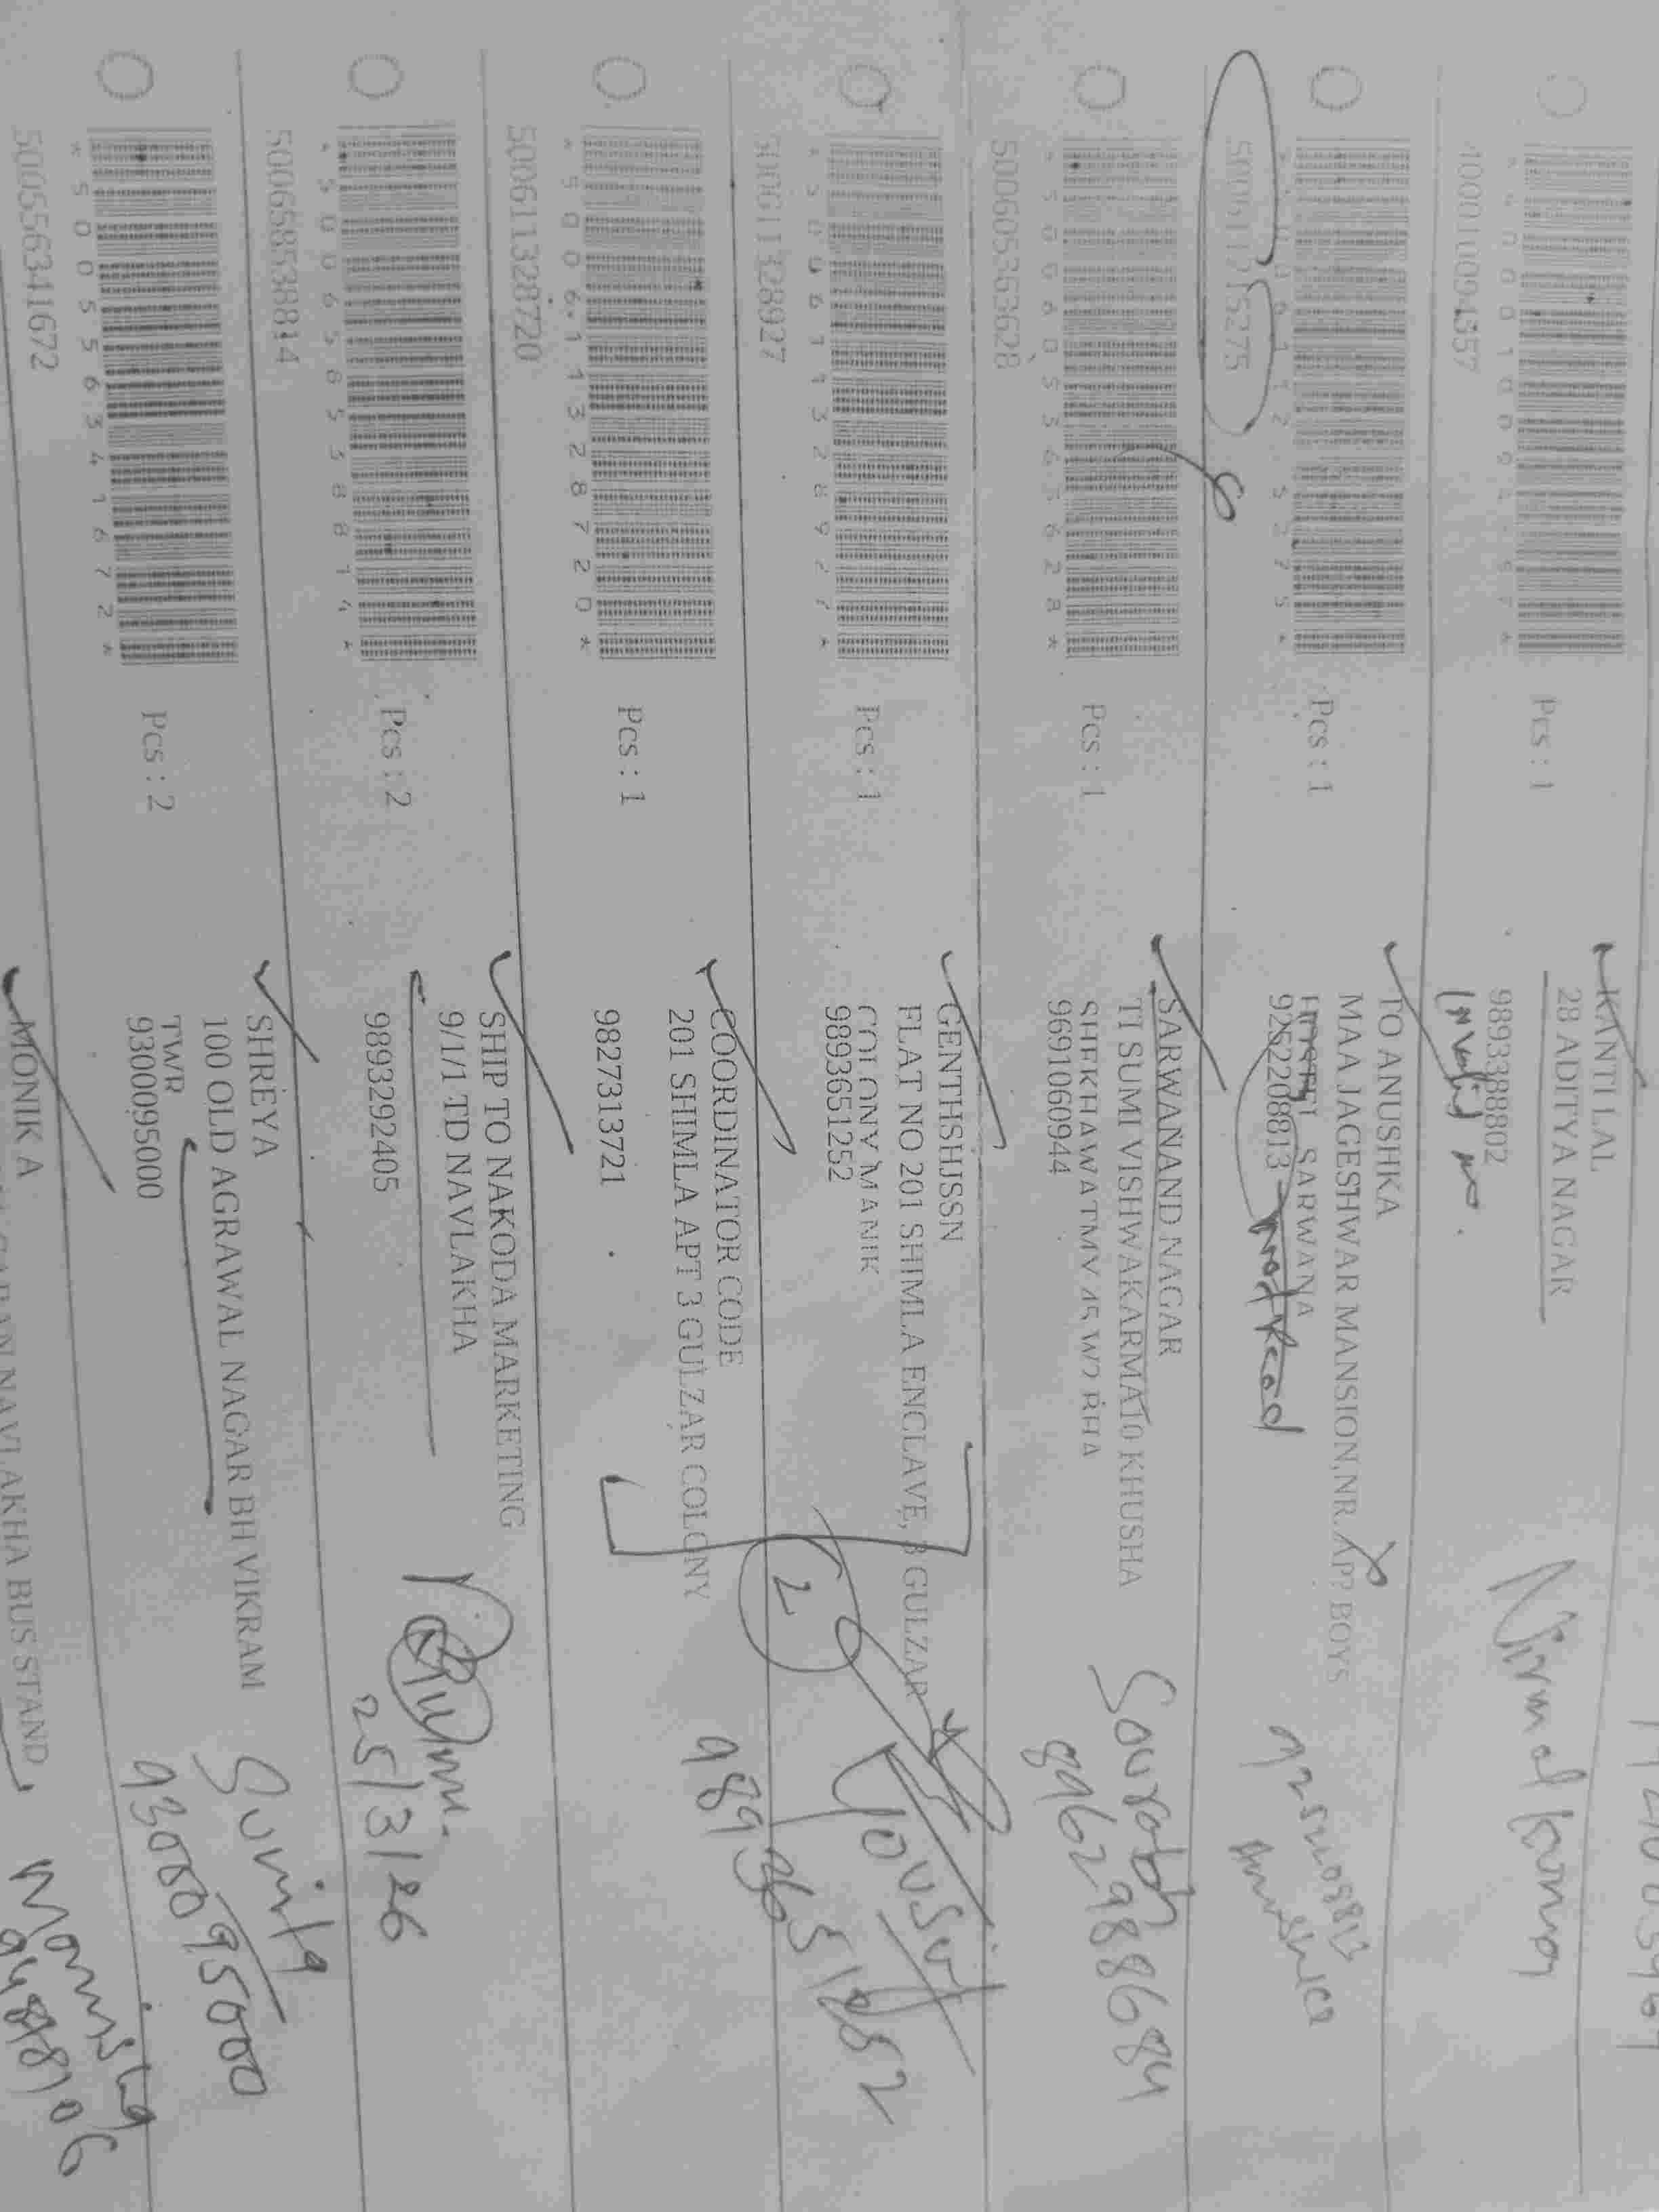 Pcs : 1
KANTI LAL
28 ADITYA NAGAR
9893388802
Invalid no.
Nirmal
50061
15275
Pcs : 1
TO ANUSHKA
MAA JAGESHWAR MANSION,NR. APP BOYS
SARWANA
9252208813
not Recd
Anushka
500605363628
Pcs : 1
SARWANAND NAGAR
TI SUMI VISHWAKARMA10 KHUSHA
SHEKHAWATMV 45 W2 BHA
9691060944
Sourabh
8962988684
500611328927
Pcs : 1
GENTHSHJSSN
FLAT NO 201 SHIMLA ENCLAVE, 3 GULZAR
COLONY MANIK
9893651252
2
Yousuf
9893651252
500611328720
*500611328720*
Pcs : 1
COORDINATOR CODE
201 SHIMLA APT 3 GULZAR COLONY
9827313721
500658538814
Pcs : 2
SHIP TO NAKODA MARKETING
9/1/1 TD NAVLAKHA
9893292405
25/3/26
500556341672
*500556341672*
Pcs : 2
SHREYA
100 OLD AGRAWAL NAGAR BH VIKRAM
TWR
9300095000
Sunita
9300095000
MONIK A
NAVLAKHA BUS STAND